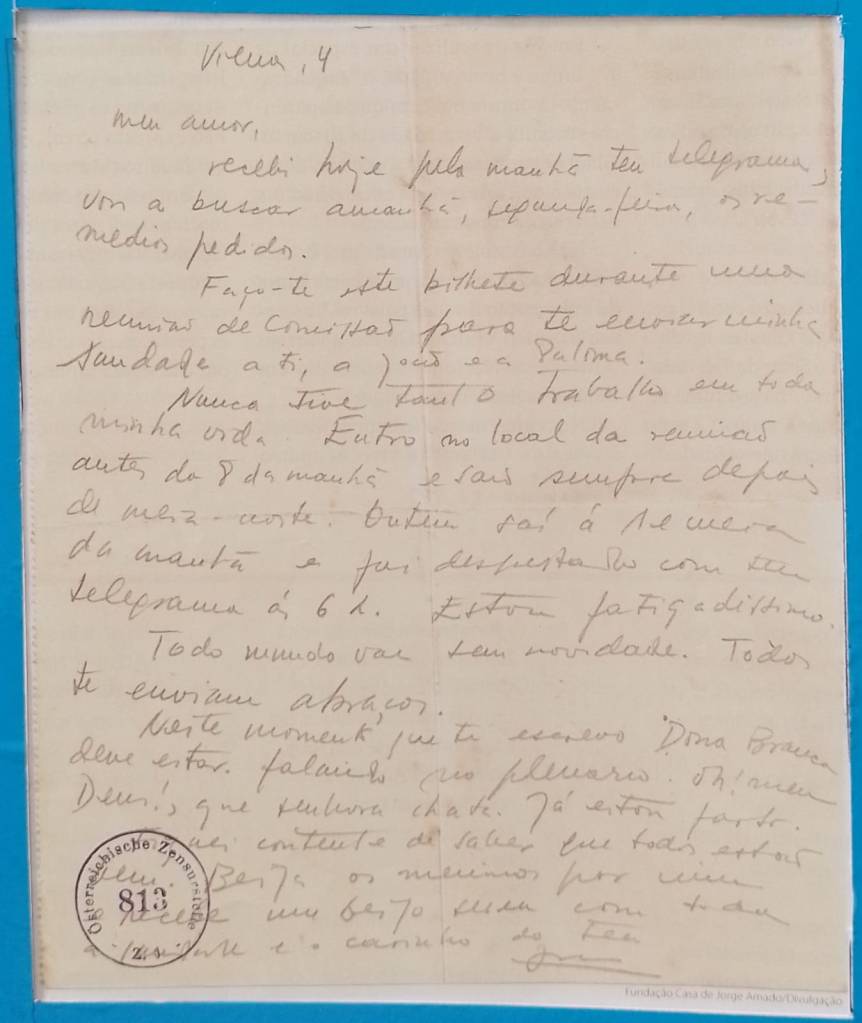 Viena, 4
meu amor,
recebi hoje pela manhã teu telegrama,
vou a buscar amanhã, segunda-feira, os re-
medios pedidos.
Faço-te este bilhete durante uma
reunião de Comissão para te enviar minha
saudade a ti, a João e a Paloma.
Nunca tive tanto trabalho em toda
minha vida. Entro no local da reunião
antes da 8 da manhã e saio sempre depois
de meia-noite. Ontem saí á 1 e meia
da manhã e fui despertado com teu
telegrama ás 6 h. Estou fatigadissimo.
Todo mundo vae sem novidade. Todos
te enviam abraços.
Neste momento que te escrevo Dona Branca
deve estar falando no plenario. Oh! meu
Deus!, que senhora chata. Já estou farto.
Fiquei contente de saber que todos estão
bem. Beija os meninos por mim
e recebe um beijo meu com toda
a saudade e o carinho do teu
Österreichische Zensurstelle
813
Fundação Casa de Jorge Amado/Divulgação